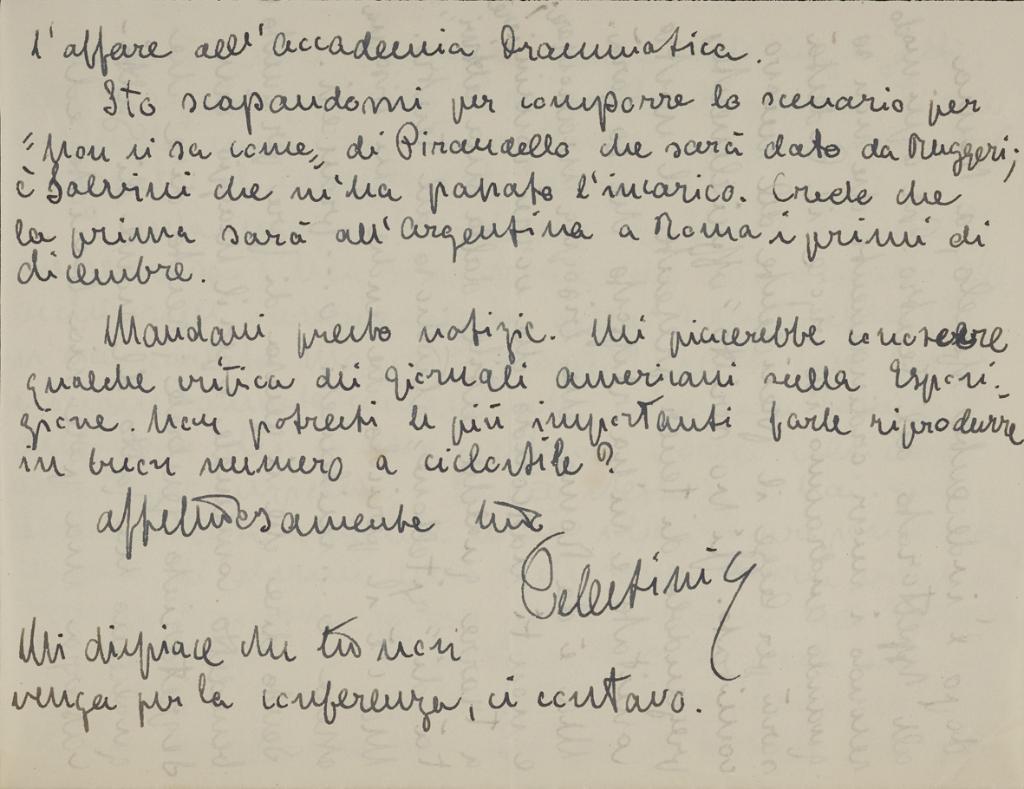 l'affare dell'Accademia Drammatica.
Sto scapandomi per comporre lo scenario per
"Non si sa come" di Pirandello che sarà dato da Ruggeri;
è Salvini che m'ha passato l'incarico. Crede che
la prima sarà all'Argentina a Roma i primi di
dicembre.
Mandami presto notizie. Mi piacerebbe conoscere
qualche critica dei giornali americani sulla Esposi-
zione. Non potresti le più importanti farle riprodurre
in buon numero a ciclostile?
affettuosamente tuo
Celestini
Mi dispiace che tu non
venga per la conferenza, ci contavo.